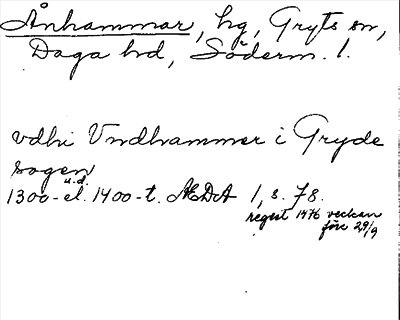 Ånhammar, hg, Gryts sn,
Daga hd, Söderm. l.
vdhi Vndhammer i Gryde
sogen
u.d.
1300- el. 1400-t. ÆDA 1, s. 78.
regest 1476 veckan
före 29/9